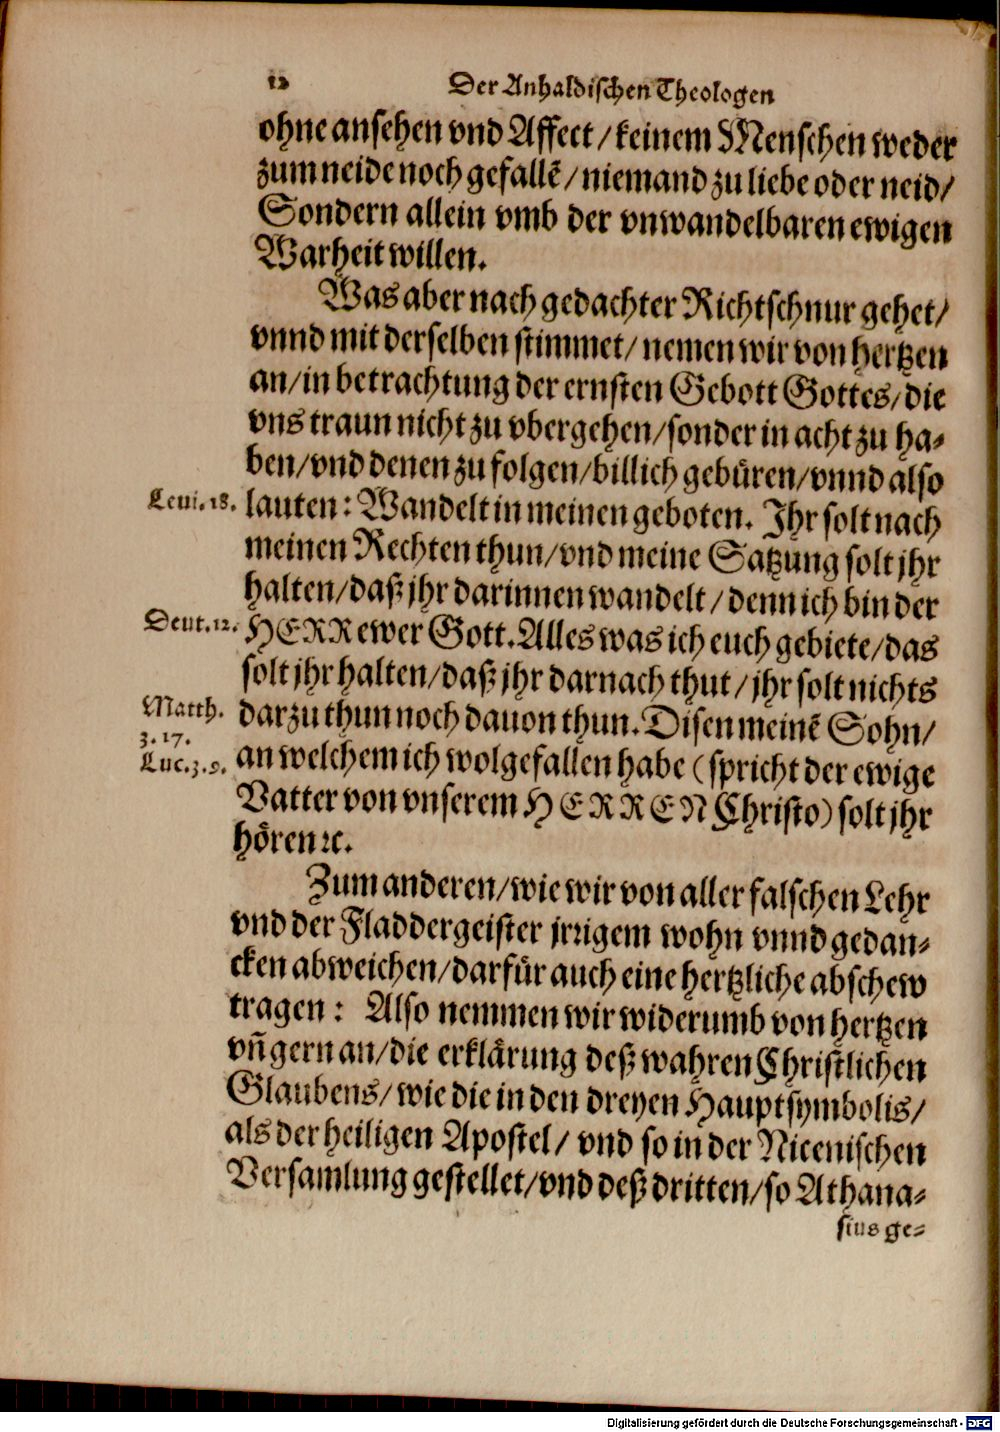 12 Der Anhaldischen Theologen
ohne ansehen vnd Affect / keinem Menschen weder
zum neide noch gefallẽ / niemand zu liebe oder neid /
Sondern allein vmb der vnwandelbaren ewigen
Warheit willen.
Was aber nach gedachter Richtschnur gehet /
vnnd mit derselben stimmet / nemen wir von hertzen
an / in betrachtung der ernsten Gebott Gottes / die
vns traun nicht zu vbergehen / sonder in acht zu ha-
ben / vnd denen zu folgen / billich gebüren / vnnd also
Leui. 18. lauten: Wandelt in meinen geboten. Jhr solt nach
meinen Rechten thun / vnd meine Satzung solt jhr
halten / daß jhr darinnen wandelt / denn ich bin der
Deut. 12. HERR ewer Gott. Alles was ich euch gebiete / das
solt jhr halten / daß jhr darnach thut / jhr solt nichts
Matth. darzu thun noch dauon thun. Disen meinẽ Sohn /
3. 17.
Luc. 3. 9. an welchem ich wolgefallen habe (spricht der ewige
Vatter von vnserem HERREN Christo) solt jhr
hören ꝛc.
Zum anderen / wie wir von aller falschen Lehr
vnd der Fladdergeister jrrigem wohn vnnd gedan-
cken abweichen / darfür auch eine hertzliche abschew
tragen: Also nemmen wir widerumb von hertzen
vñ gern an / die erklärung deß wahren Christlichen
Glaubens / wie die in den dreyen Hauptsymbolis /
als der heiligen Apostel / vnd so in der Nicenischen
Versamlung gestellet / vnd deß dritten / so Athana-
sius ge-
Digitalisierung gefördert durch die Deutsche Forschungsgemeinschaft - DFG